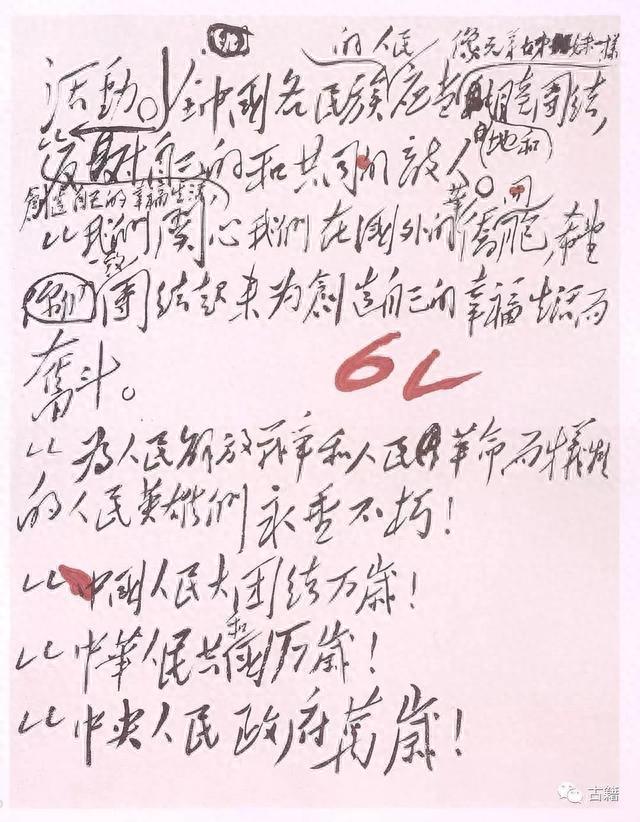 的人民 像兄弟姊妹一樣
活動。全中國各民族应当團結,
反對自己的和共同的敌人。
地和
創造自己的幸福生活,
我們関心我們在國外的華僑同胞,希望
一致
你們團結起來为創造自己的幸福生活而
奮斗。
6
为人民解放战争和人民革命而犧牲
的人民英雄們永垂不朽!
中國人民大团結万歲!
和
中華人民共國万歲!
中央人民政府萬歲!
古籍